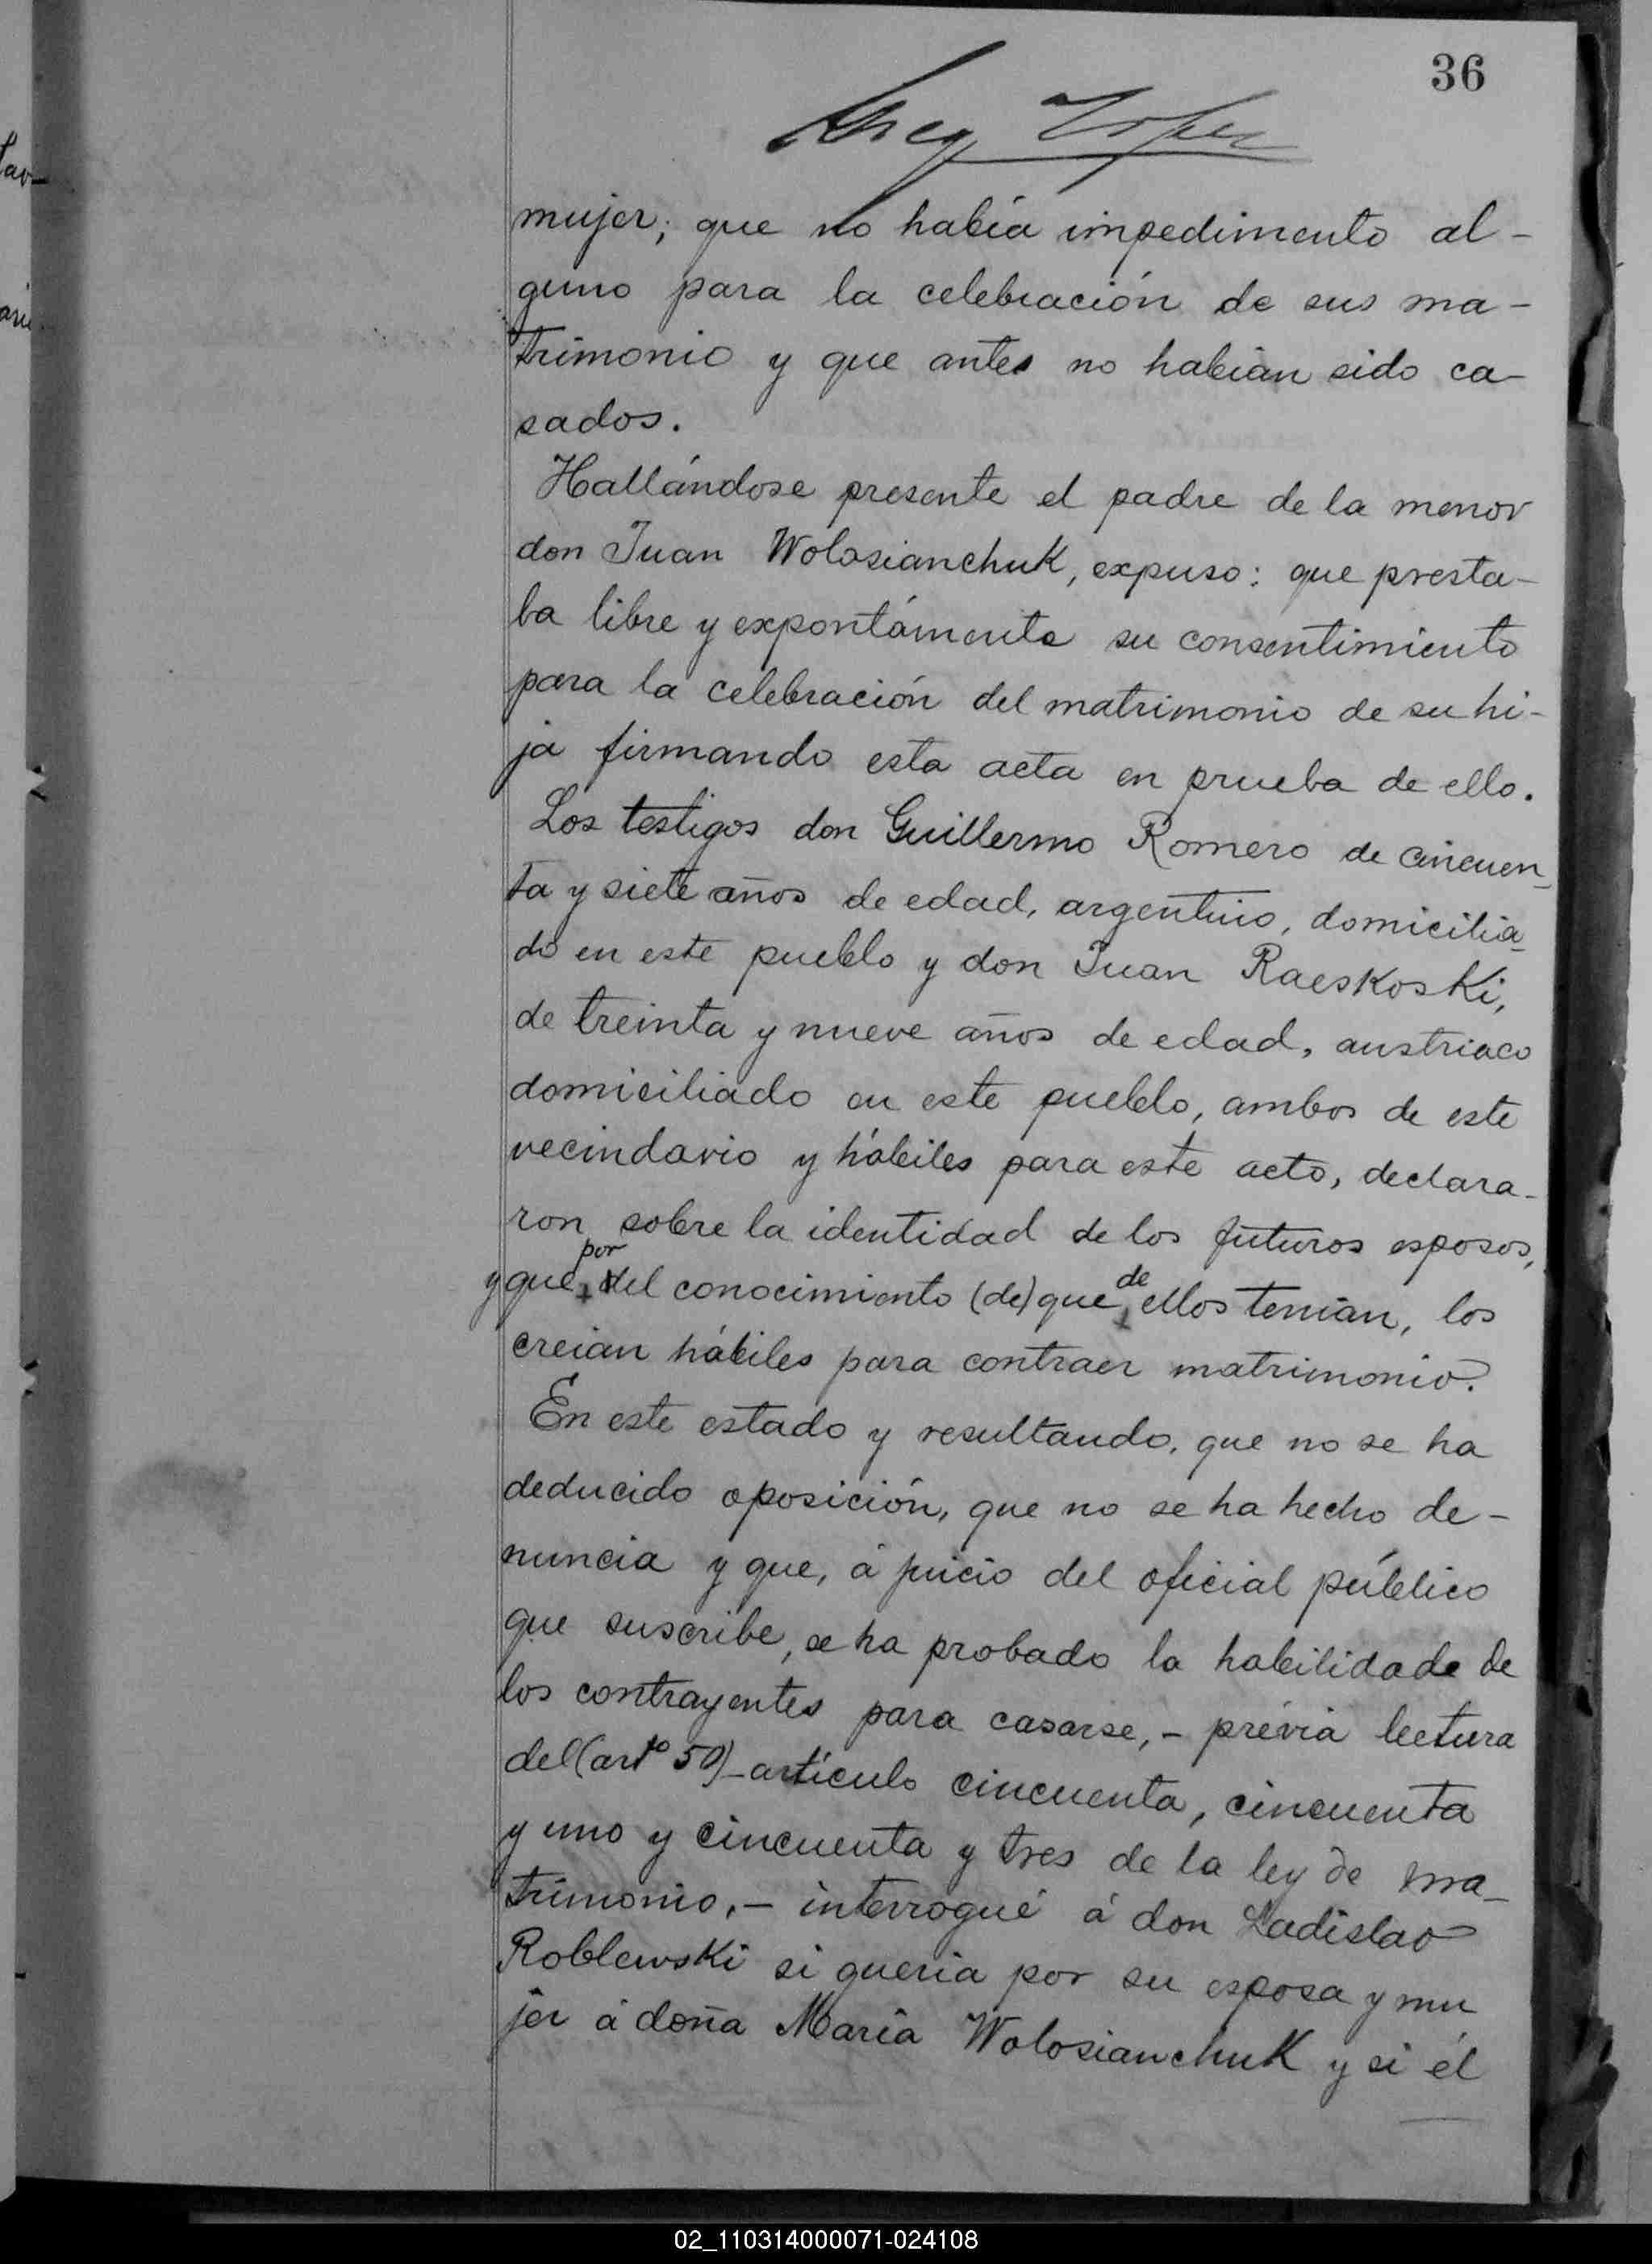 36
mujer; que no había impedimento al-
guno para la celebración de sus ma-
trimonio y que antes no habían sido ca-
sados.
Hallándose presente el padre de la menor
don Juan Wolosianchuk, expuso: que presta-
ba libre y expontámente su consentimiento
para la celebración del matrimonio de su hi-
ja firmando esta acta en prueba de ello.
Los testigos don Guillermo Romero de cincuen-
ta y siete años de edad, argentino, domicilia-
do en este pueblo y don Juan Raeskoski,
de treinta y nueve años de edad, austriaco
domiciliado en este pueblo, ambos de este
vecindario y hábiles para este acto, declara-
ron sobre la identidad de los futuros esposos,
y que por del conocimiento (de) que de ellos tenían, los
creían hábiles para contraer matrimonio.
En este estado y resultando, que no se ha
deducido oposición, que no se ha hecho de-
nuncia y que, á juicio del oficial público
que suscribe, se ha probado la habilidade de
los contrayentes para casarse,- prévia lectura
del (arto 50)- artículo cincuenta, cincuenta
y uno y cincuenta y tres de la ley de ma-
trimonio,- interrogué á don Ladislao
Roblewski si quería por su esposa y mu
jer á doña María Wolosianchuk y si él
02_110314000071-024108